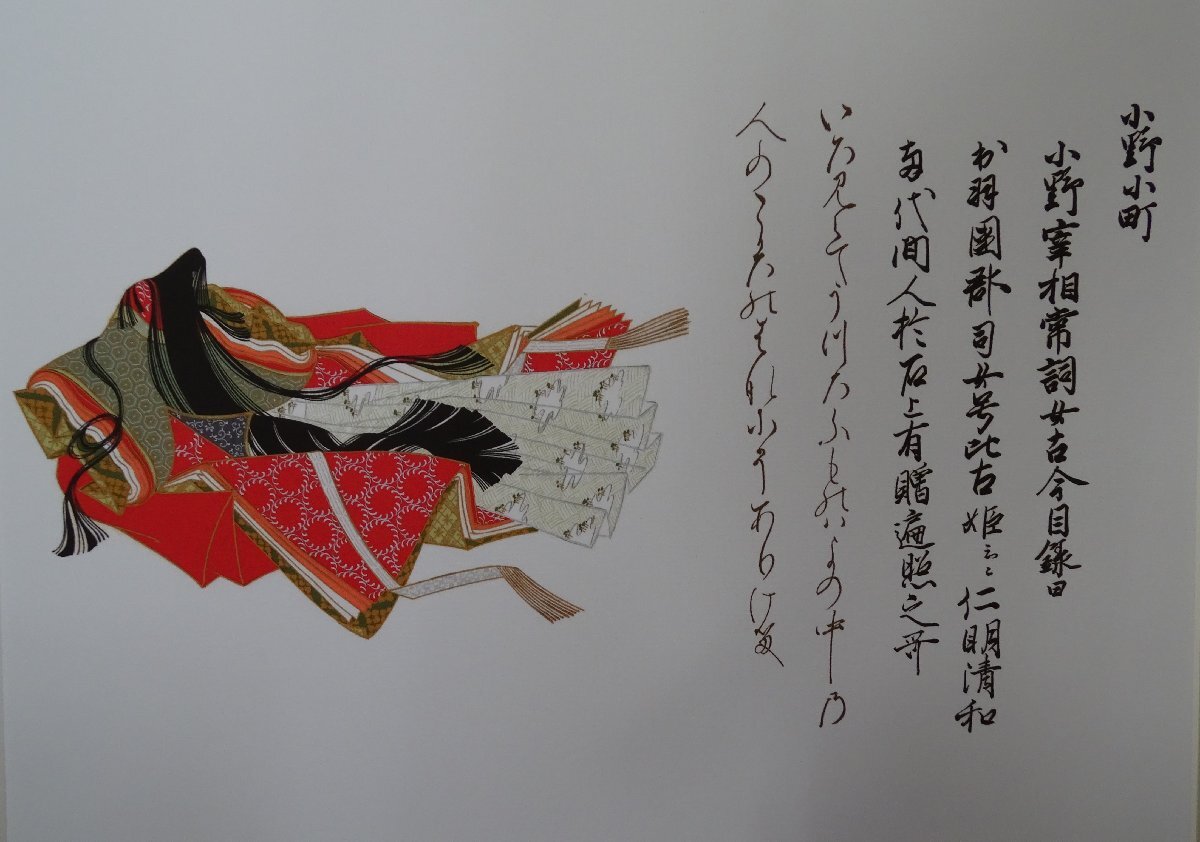 小野小町
小野宰相常詞女古今目録曰
出羽国郡司女号比古姫云々仁明清和
両代間人於石上有贈遍照之哥
いろ見えてうつろふものはよの中の
人のこゝろのはなにそありける